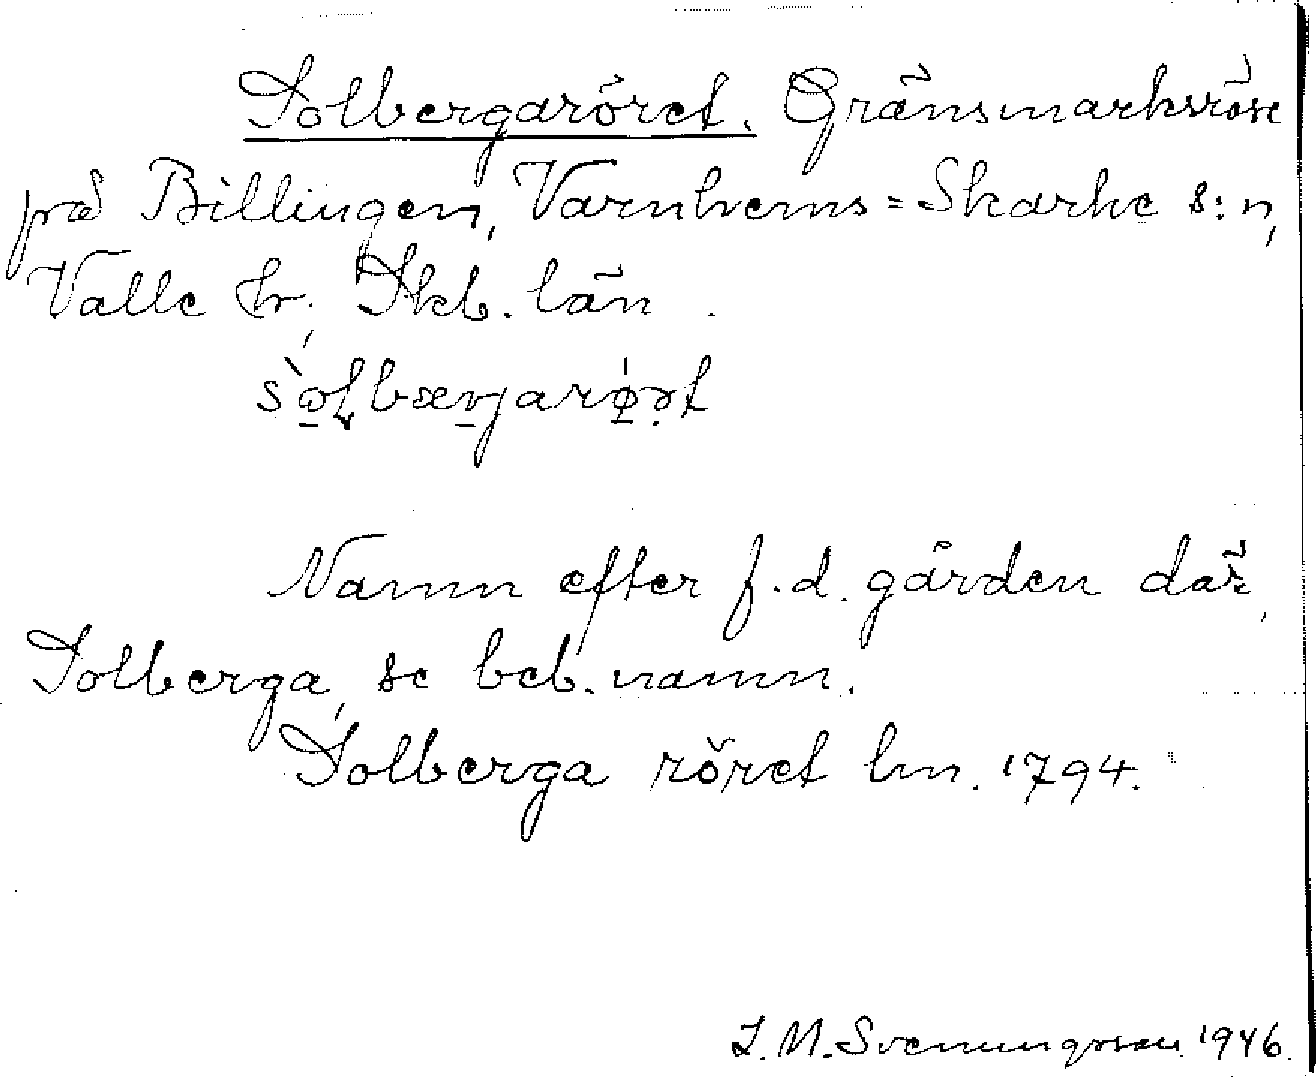 Solbergaröret. Gränsmarksröse
på Billingen, Varnhems=Skarke s:n,
Valle hr, Skb. län.
Namn efter f.d. gården där,
Solberga, se beb. namn.
Solberga röret lm. 1794.
S. M. Svenungsson 1946.